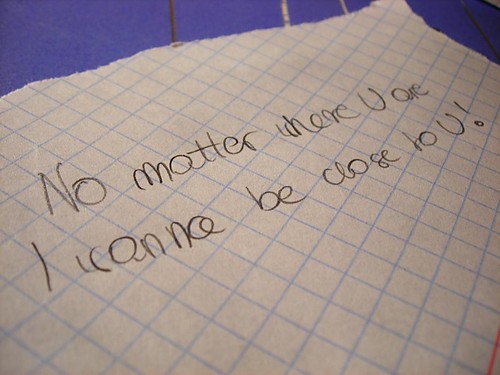 No matter where U are
I wanna be close to U!